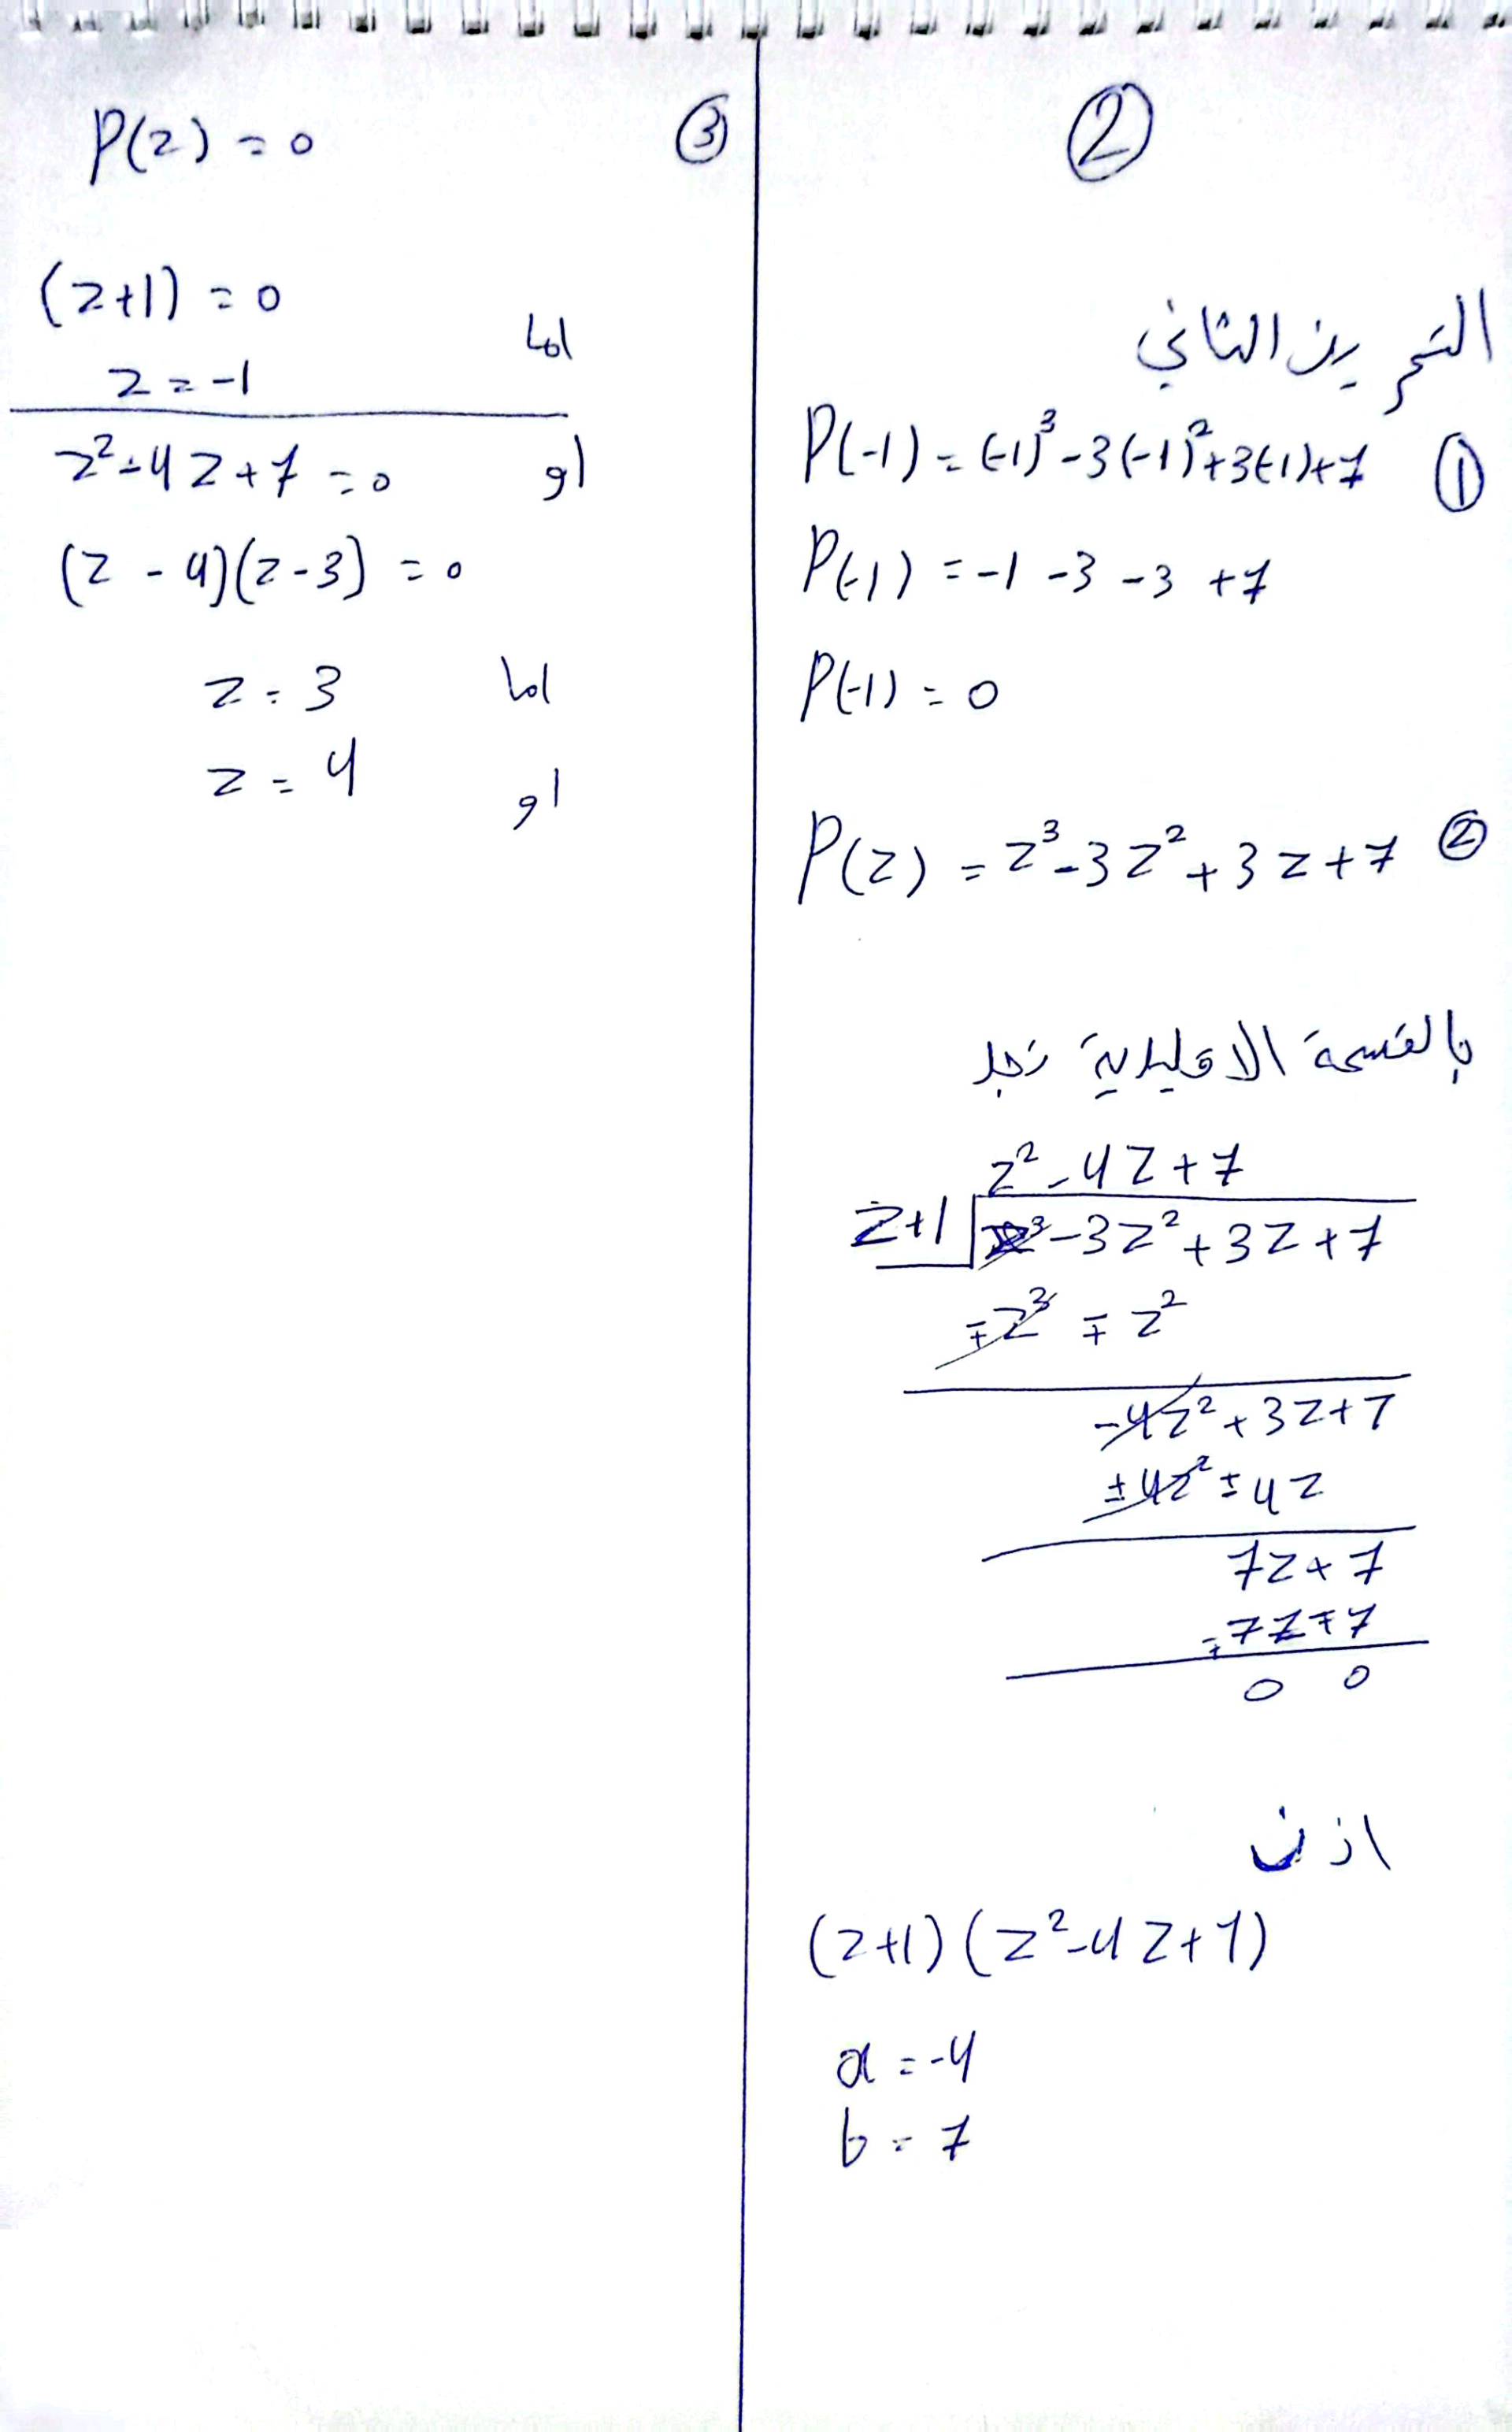 ②
التمرين الثاني
① P(-1) = (-1)³ - 3(-1)² + 3(-1) + 7
P(-1) = -1 - 3 - 3 + 7
P(-1) = 0
② P(z) = z³ - 3z² + 3z + 7
بالقسمة الاقليدية نجد
z² - 4z + 7
z+1 z³ - 3z² + 3z + 7
∓z³ ∓ z²
-4z² + 3z + 7
±4z² ± 4z
7z + 7
∓7z ∓ 7
0 0
اذن
(z+1)(z² - 4z + 7)
a = -4
b = 7
③ P(z) = 0
اما (z+1) = 0
z = -1
او z² - 4z + 7 = 0
(z - 4)(z - 3) = 0
اما z = 3
او z = 4